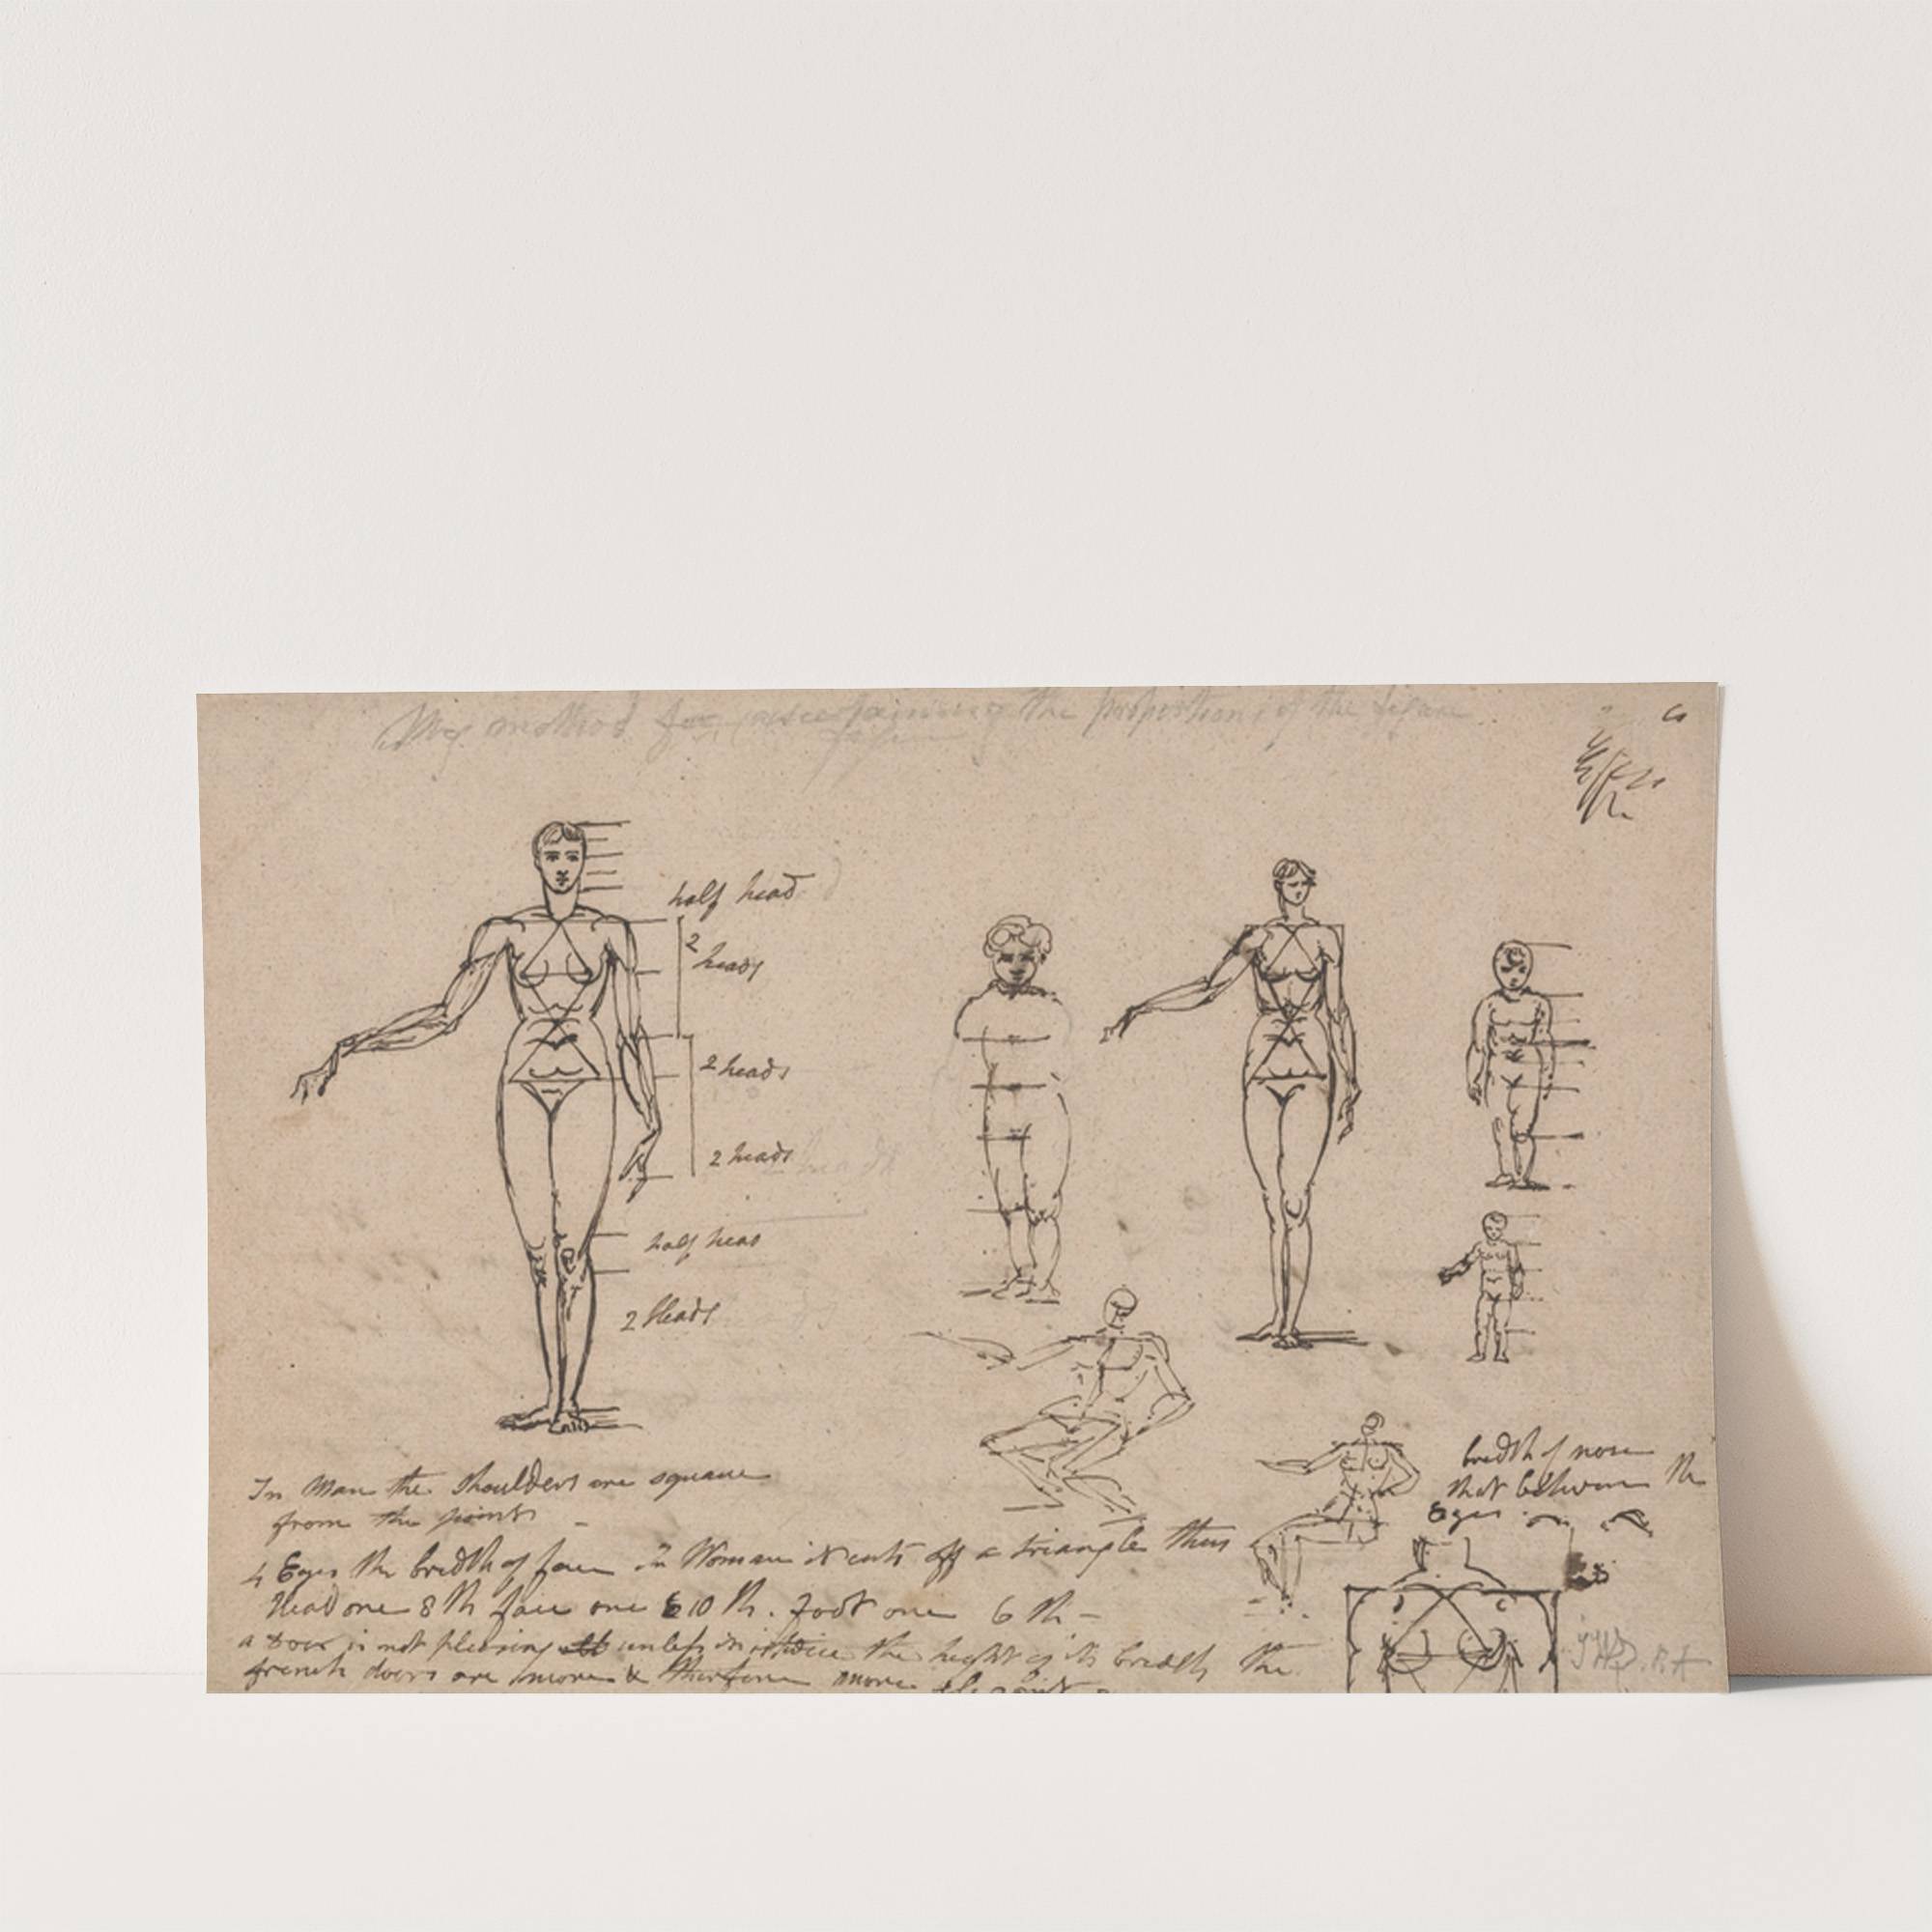 My method for ascertaining the proportions of the figure
half head
2
heads
2 heads
2 heads
half head
2 Heads
In Man the shoulders are square
from the points
bredth of nose
that between the
Eyes
4 Eyes the bredth of face in Woman it cuts off a triangle thus
Head one 8th face one 10th. Foot one 6th
a door is not pleasing unless in twice the height of its bredth the
french doors are more & therefore more
R A